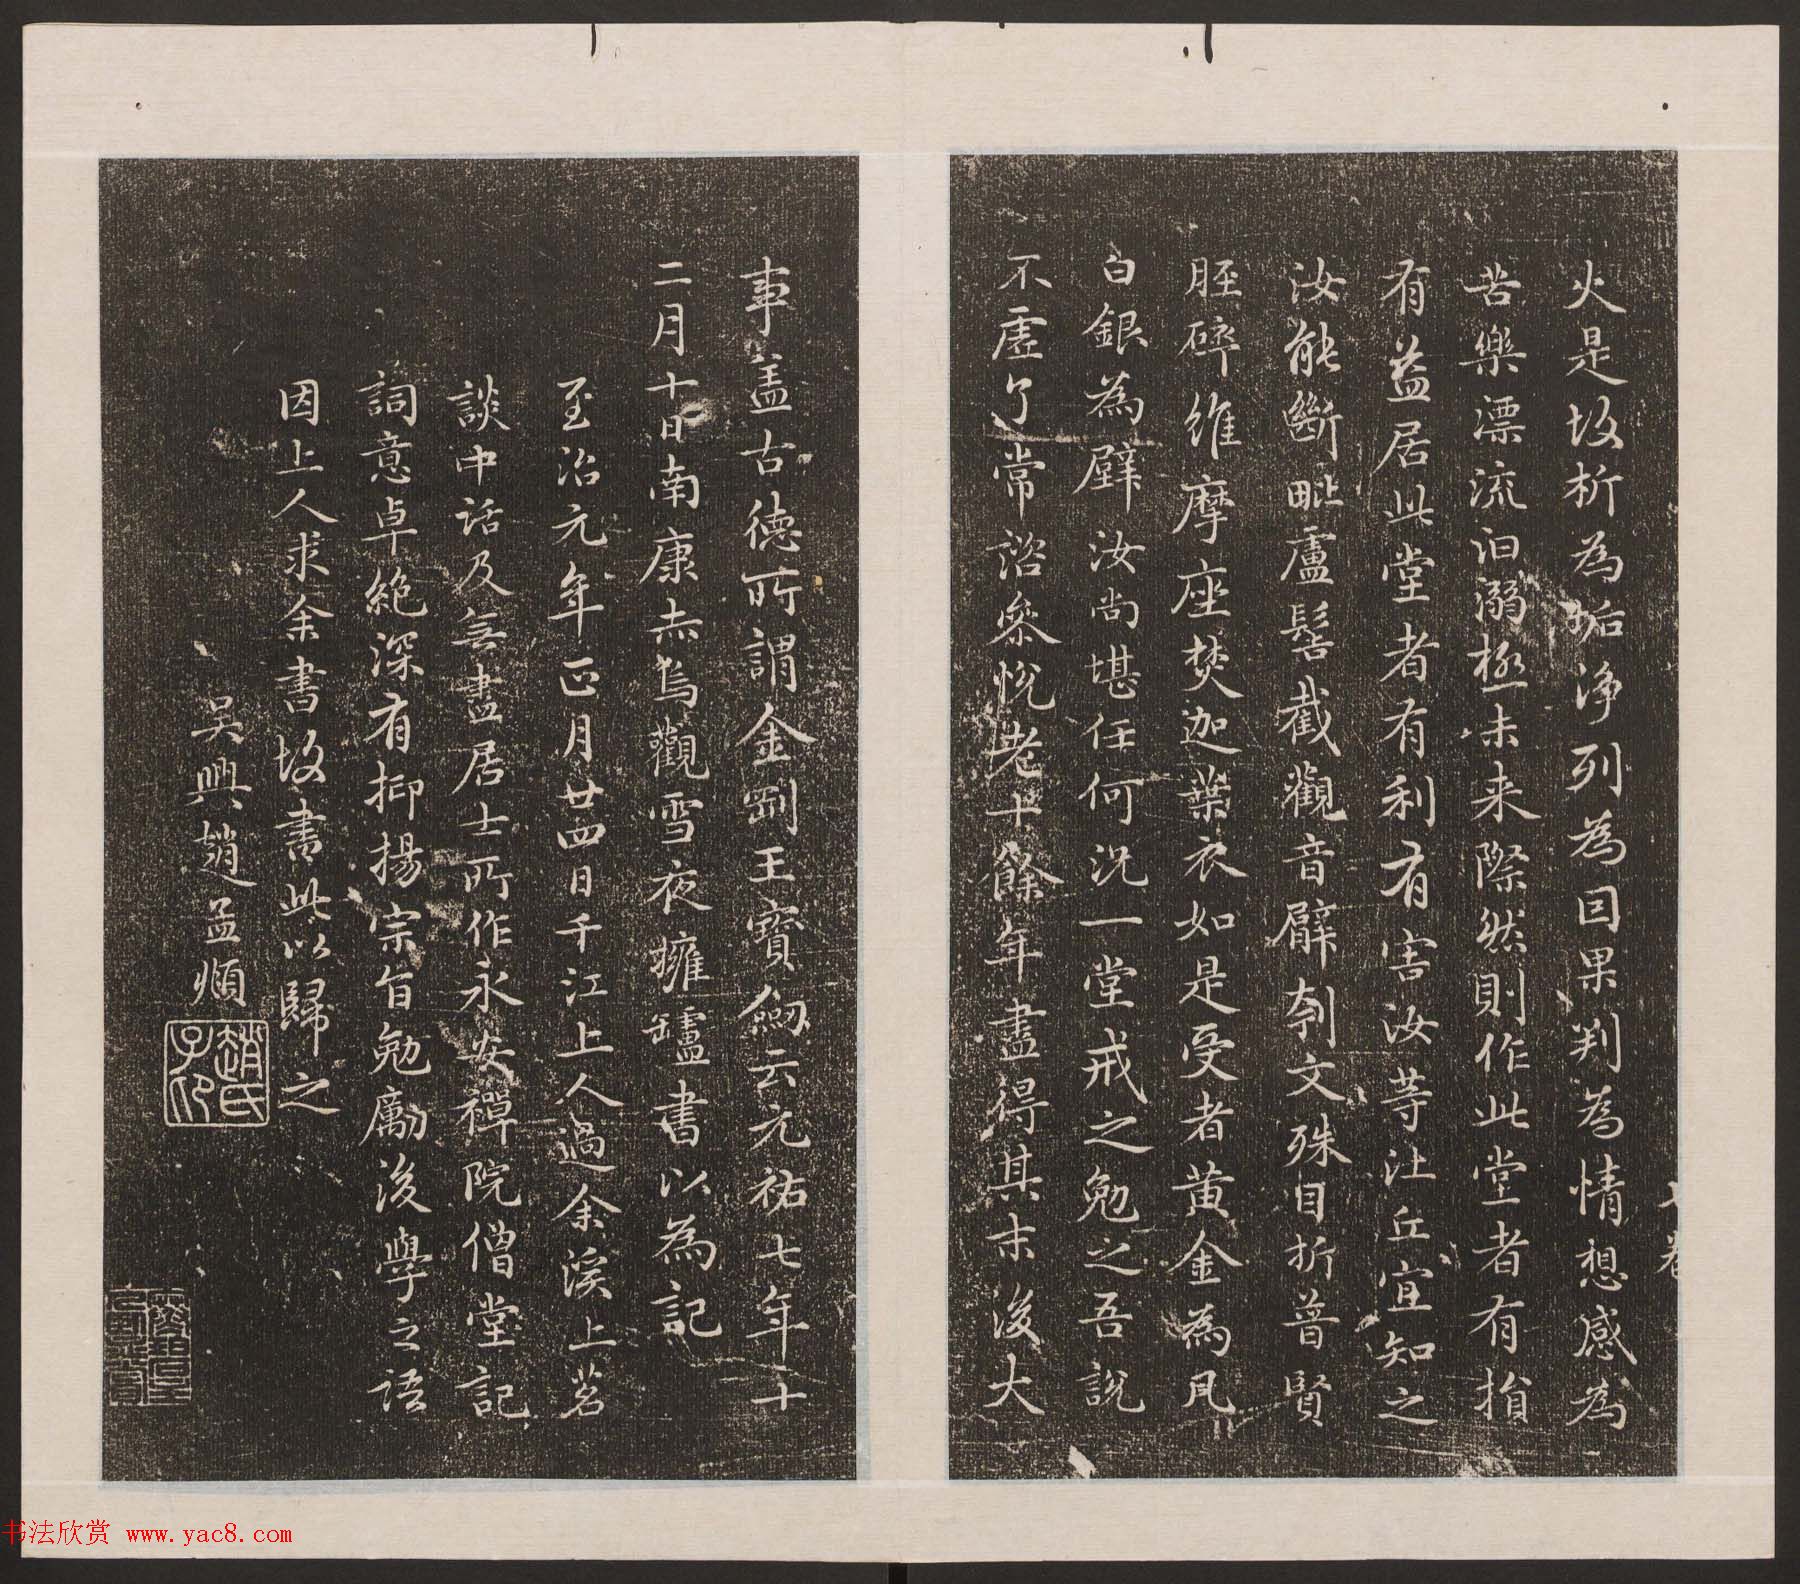 火是故析為垢淨列為因果判為情想感為
苦樂漂流汩溺極未来際然則作此堂者有損
有益居此堂者有利有害汝等比丘宜知之
汝能斷毗盧髻截觀音臂刳文殊目折普賢
脛碎維摩座焚迦葉衣如是受者黄金為瓦
白銀為壁汝尚堪任何況一堂戒之勉之吾說
不虛了常諮叅悅老十餘年盡得其末後大
事盖古德所謂金剛王寶劔云元祐七年十
二月十日南康赤烏觀雪夜擁鑪書以為記
至治元年正月廿四日千江上人過余溪上茗
談中話及無盡居士所作永安禪院僧堂記
詞意卓絶深有抑揚宗旨勉勵後學之語
因上人求余書故書此以歸之
吳興趙孟頫
趙氏子印
书法欣赏 www.yac8.com